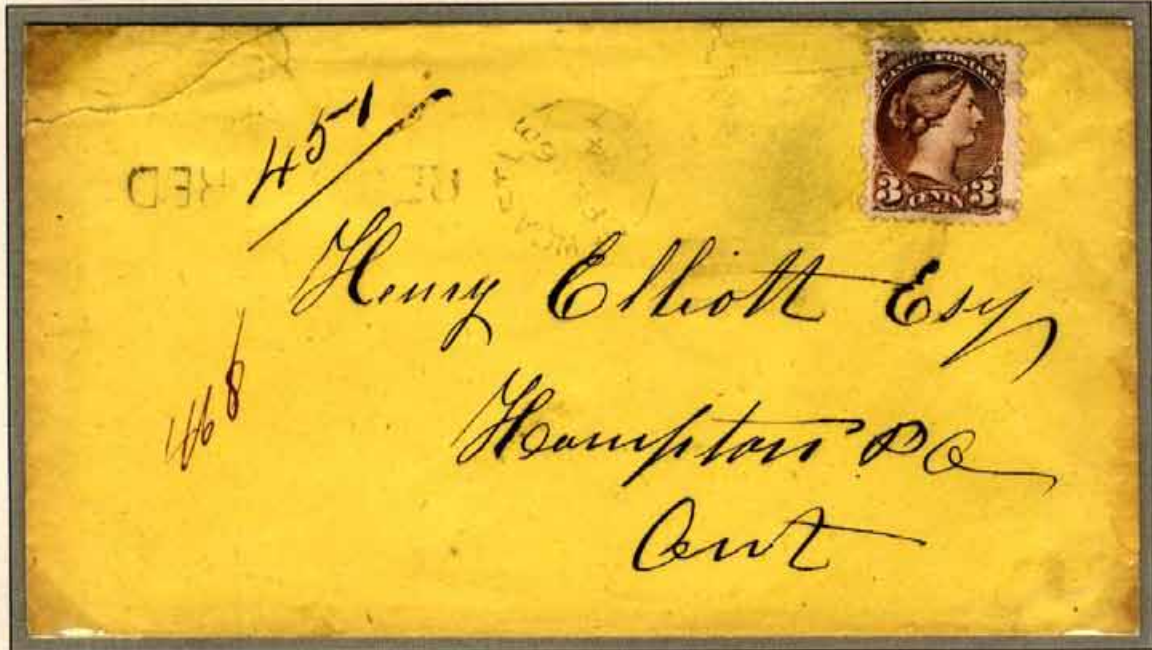 CANADA POSTAGE
3 CENTS 3
451
Henry Elliott Esq
468
Hampton PO
Ont